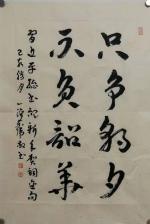 只争朝夕
不负韶华
习近平总书记新年贺词金句
乙亥